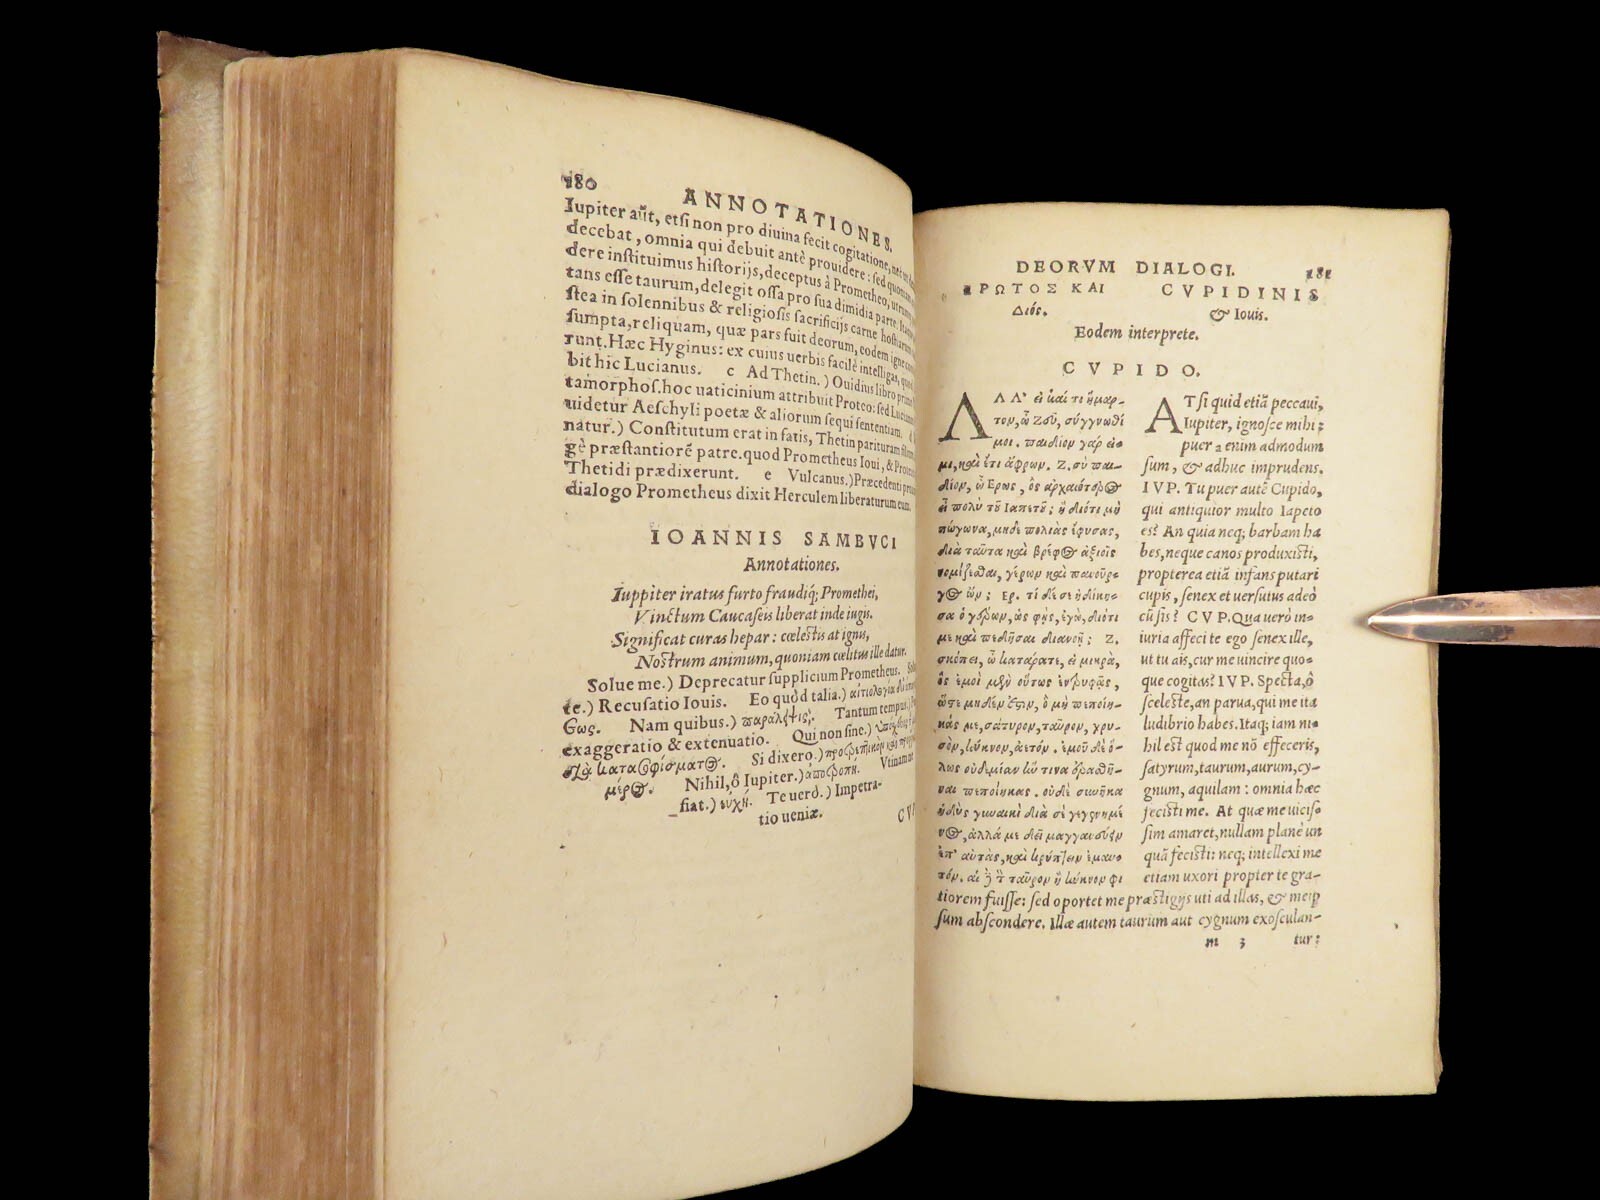 180 ANNOTATIONES.
Iupiter aūt, etsi non pro diuina fecit cogitatione, nec ut
decebat, omnia qui debuit antè prouidere: sed quoniam
dere instituimus historijs, deceptus à Prometheo, utrum
tans esse taurum, delegit ossa pro sua dimidia parte.
stea in solennibus & religiosis sacrificijs carne hostiarum
sumpta, reliquam, quæ pars fuit deorum, eodem igne
runt. Hæc Hyginus: ex cuius uerbis facilè intelligas, quid
bit hic Lucianus. c Ad Thetin.) Ouidius libro
tamorphos. hoc uaticinium attribuit Proteo: sed
uidetur Aeschyli poetæ & aliorum sequi sententiam.
natur.) Constitutum erat in fatis, Thetin parituram
gè præstantiorē patre. quod Prometheus Ioui, &
Thetidi prædixerunt. e Vulcanus.) Præcedenti
dialogo Prometheus dixit Herculem liberaturum eum.
IOANNIS SAMBVCI
Annotationes.
Iuppiter iratus furto fraudiq; Promethei,
Vinctum Caucaseis liberat inde iugis.
Significat curas hepar: cœlestis at ignis,
Nostrum animum, quoniam cœlitus ille datur.
Solue me.) Deprecatur supplicium Prometheus.
te.) Recusatio Iouis. Eo quòd talia.) αἰτιολογία
Nam quibus.) παράληψις. Tantum tempus.)
exaggeratio & extenuatio. Qui non sine.)
κατασοφίσματος. Si dixero.)
μέρος. Nihil, ô Iupiter.) ἀποτροπή. Vtinam
fiat.) εὐχή. Te uerò.) Impetra-
tio ueniæ.
DEORVM DIALOGI. 181
ΕΡΩΤΟΣ ΚΑΙ
Διός.
CVPIDINIS
& Iouis.
Eodem interprete.
CVPIDO.
ΑΛΛ' εἰ καί τι ἥμαρ-
τον, ὦ Ζεῦ, σύγγνωθί
μοι. παιδίον γάρ εἰ-
μι, καὶ ἔτι ἄφρων. Ζ. σὺ παι-
δίον, ὦ Ερως, ὃς ἀρχαιότερος
εἶ πολὺ τοῦ Ιαπετοῦ; ἢ διότι μὴ
πώγωνα, μηδὲ πολιὰς ἔφυσας,
διὰ ταῦτα καὶ βρέφος ἀξιοῖς
νομίζεσθαι, γέρων καὶ πανοῦρ-
γος ὤν; Ερ. τί δέ σε ἠδίκη-
σα ὁ γέρων, ὡς φῂς, ἐγὼ, διότι
με καὶ πεδῆσαι διανοῇ; Ζ.
σκόπει, ὦ κατάρατε, εἰ μικρὰ,
ὃς ἐμοὶ μὲν οὕτως ἐντρυφᾷς,
ὥστε μηδέν ἐστιν, ὃ μὴ πεποίη-
κάς με, σάτυρον, ταῦρον, χρυ-
σὸν, κύκνον, ἀετόν. ἐμοῦ δὲ ὅ-
λως οὐδεμίαν ἥν τινα ἐρασθῆ-
ναι πεποίηκας. οὐδὲ συνῆκα
ἡδὺς γυναικὶ διὰ σὲ γεγενημέ
νος, ἀλλά με δεῖ μαγγανεύειν
ἐπ' αὐτὰς, καὶ κρύπτειν ἐμαυ-
τόν. αἱ δὲ τὸν ταῦρον ἢ κύκνον φι
AT si quid etiā peccaui,
Iupiter, ignosce mihi:
puer enim admodum
sum, & adhuc imprudens.
IVP. Tu puer autē Cupido,
qui antiquior multo Iapeto
es? An quia neq; barbam ha
bes, neque canos produxisti,
propterea etiā infans putari
cupis, senex et uersutus adeò
cū sis? CVP. Qua uerò in-
iuria affeci te ego senex ille,
ut tu ais, cur me uincire quo-
que cogitas? IVP. Specta, ô
sceleste, an parua, qui me ita
ludibrio habes. Itaq; iam ni-
hil est quod me nō effeceris,
satyrum, taurum, aurum, cy-
gnum, aquilam: omnia hæc
fecisti me. At quæ me uicis-
sim amaret, nullam planè un
quā fecisti: neq; intellexi me
etiam uxori propter te gra-
tiorem fuisse: sed oportet me præstigijs uti ad illas, & meip
sum abscondere. Illæ autem taurum aut cygnum exosculan-
m 3 tur: